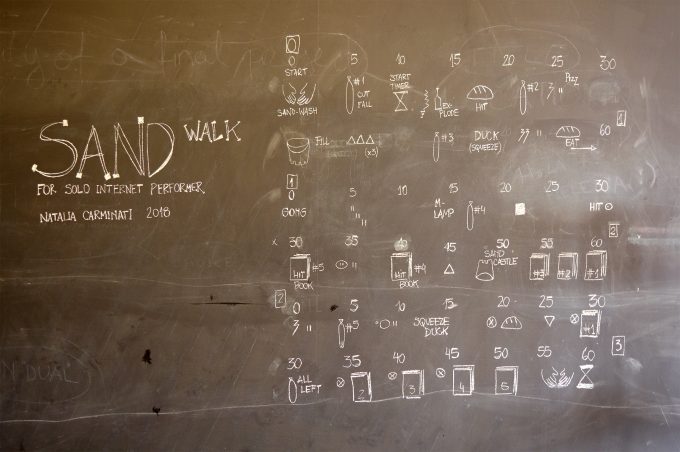 SAND WALK
FOR SOLO INTERNET PERFORMER
NATALIA CARMINATI 2018
0 5 10 15 20 25 30
START
START TIMER
#1 CUT FALL
EXPLODE
HIT
#2
SAND-WASH
FILL (x3) #3 DUCK (SQUEEZE) EAT 60
1
1
0 5 10 15 20 25 30
GONG M-LAMP #4 HIT
2
30 35 40 45 50 55 60
HIT BOOK #5 HIT BOOK #4 SAND CASTLE #3 #2 #1
2
0 5 10 15 20 25 30
#5 SQUEEZE DUCK #1
3
30 35 40 45 50 55 60
ALL LEFT 2 3 4 5